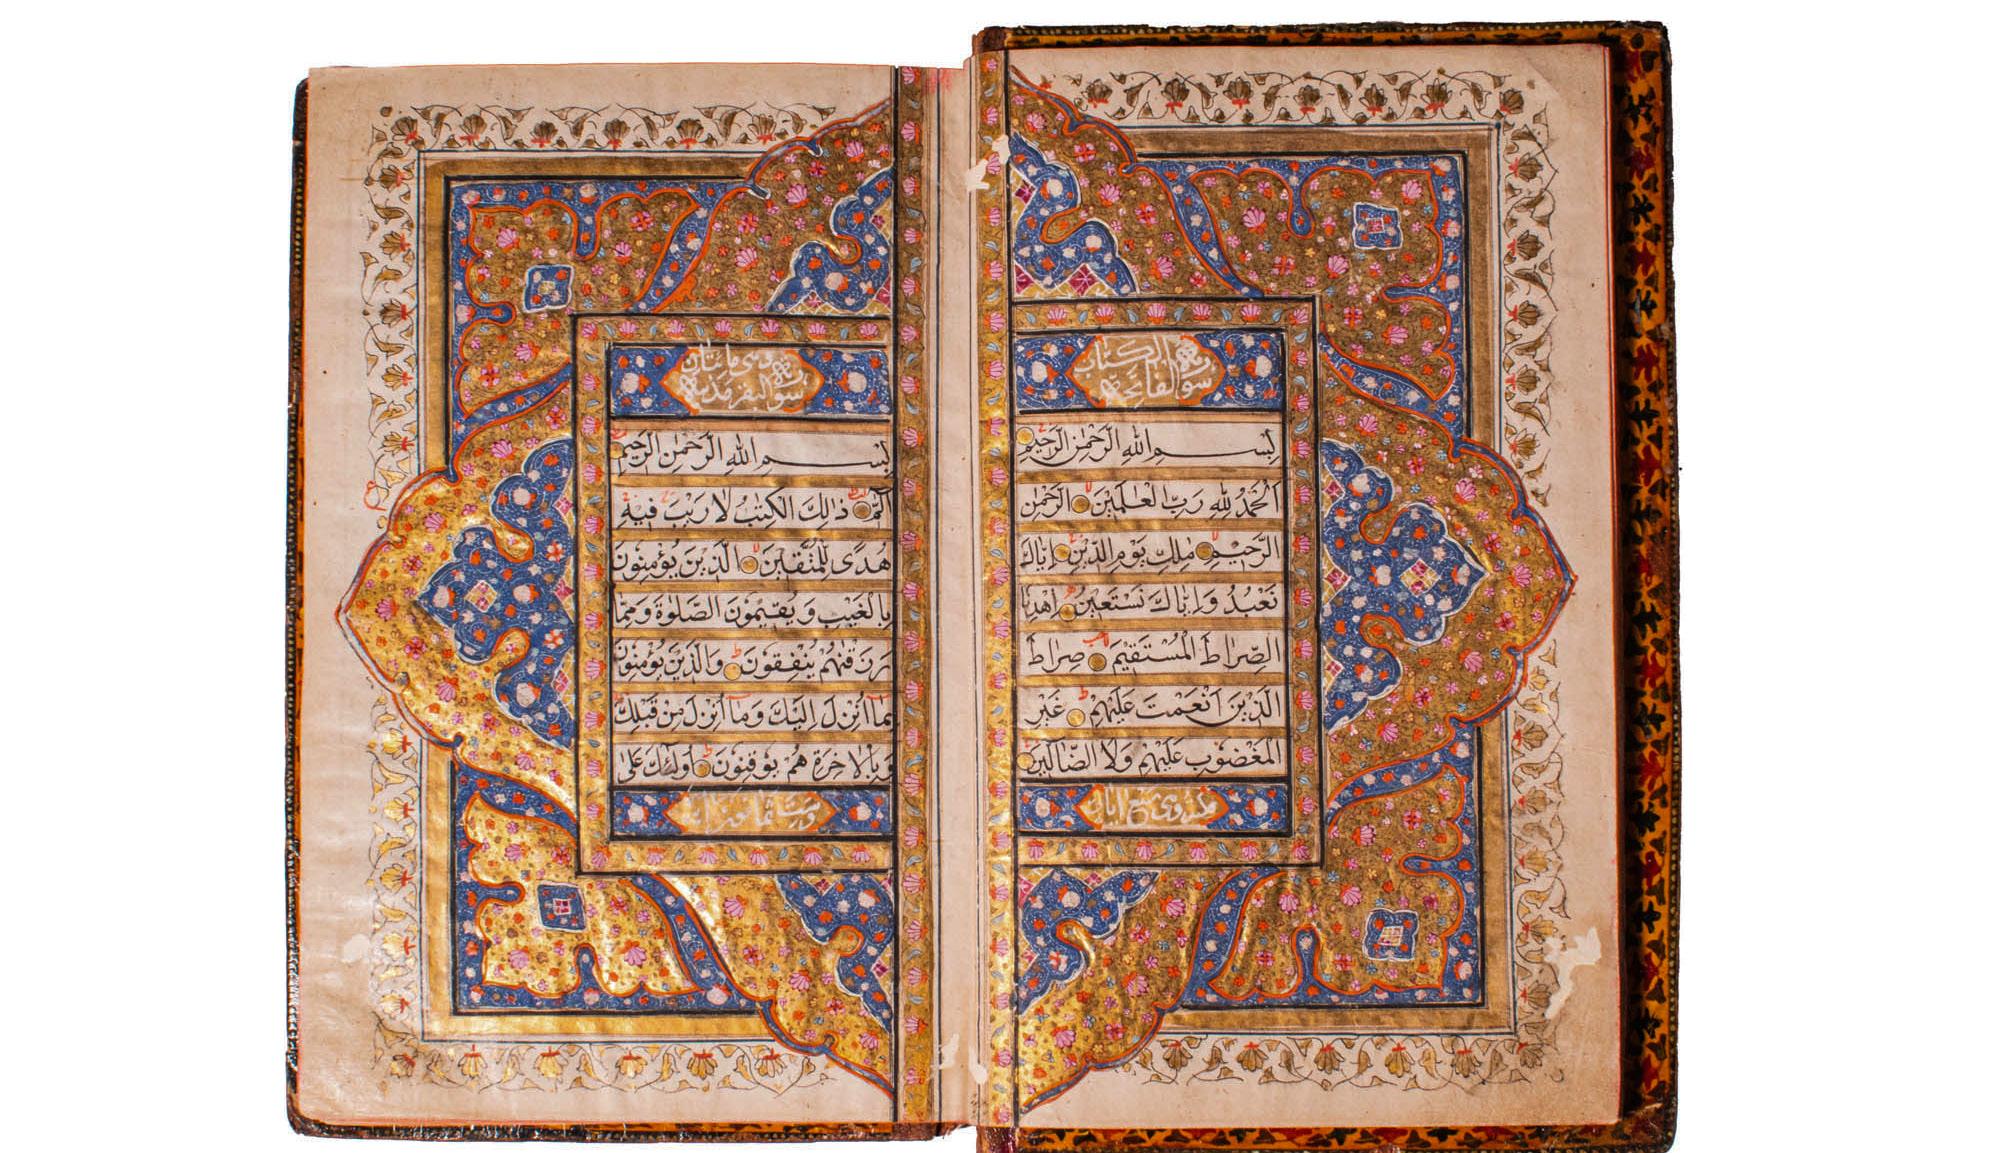 سورة الفاتحة الكتاب
بسم الله الرَّحمٰنِ الرَّحیمِ
اَلْحَمْدُ لِلّٰهِ رَبِّ الْعَالَمِیْنَ الرَّحْمٰنِ
الرَّحِیْمِ مٰلِكِ یَوْمِ الدِّیْنِ اِیَّاكَ
نَعْبُدُ وَاِیَّاكَ نَسْتَعِیْنُ اِهْدِنَا
الصِّرَاطَ الْمُسْتَقِیْمَ صِرَاطَ
الَّذِیْنَ اَنْعَمْتَ عَلَیْهِمْ غَیْرِ
الْمَغْضُوْبِ عَلَیْهِمْ وَلَا الضَّآلِّیْنَ
وهی سبع ایات
سورة البقر مدنیة وهی مائتان
بسم الله الرَّحمٰنِ الرَّحیمِ
الٓمّٓ ذَالِكَ الْكِتٰبُ لَا رَیْبَ فِیْهِ
هُدًی لِلْمُتَّقِیْنَ الَّذِیْنَ یُؤْمِنُوْنَ
بِالْغَیْبِ وَیُقِیْمُوْنَ الصَّلٰوةَ وَمِمَّا
رَزَقْنٰهُمْ یُنْفِقُوْنَ وَالَّذِیْنَ یُؤْمِنُوْنَ
بِمَآ اُنْزِلَ اِلَیْكَ وَمَآ اُنْزِلَ مِنْ قَبْلِكَ
وَبِالْاٰخِرَةِ هُمْ یُوْقِنُوْنَ اُولٰٓئِكَ عَلٰی